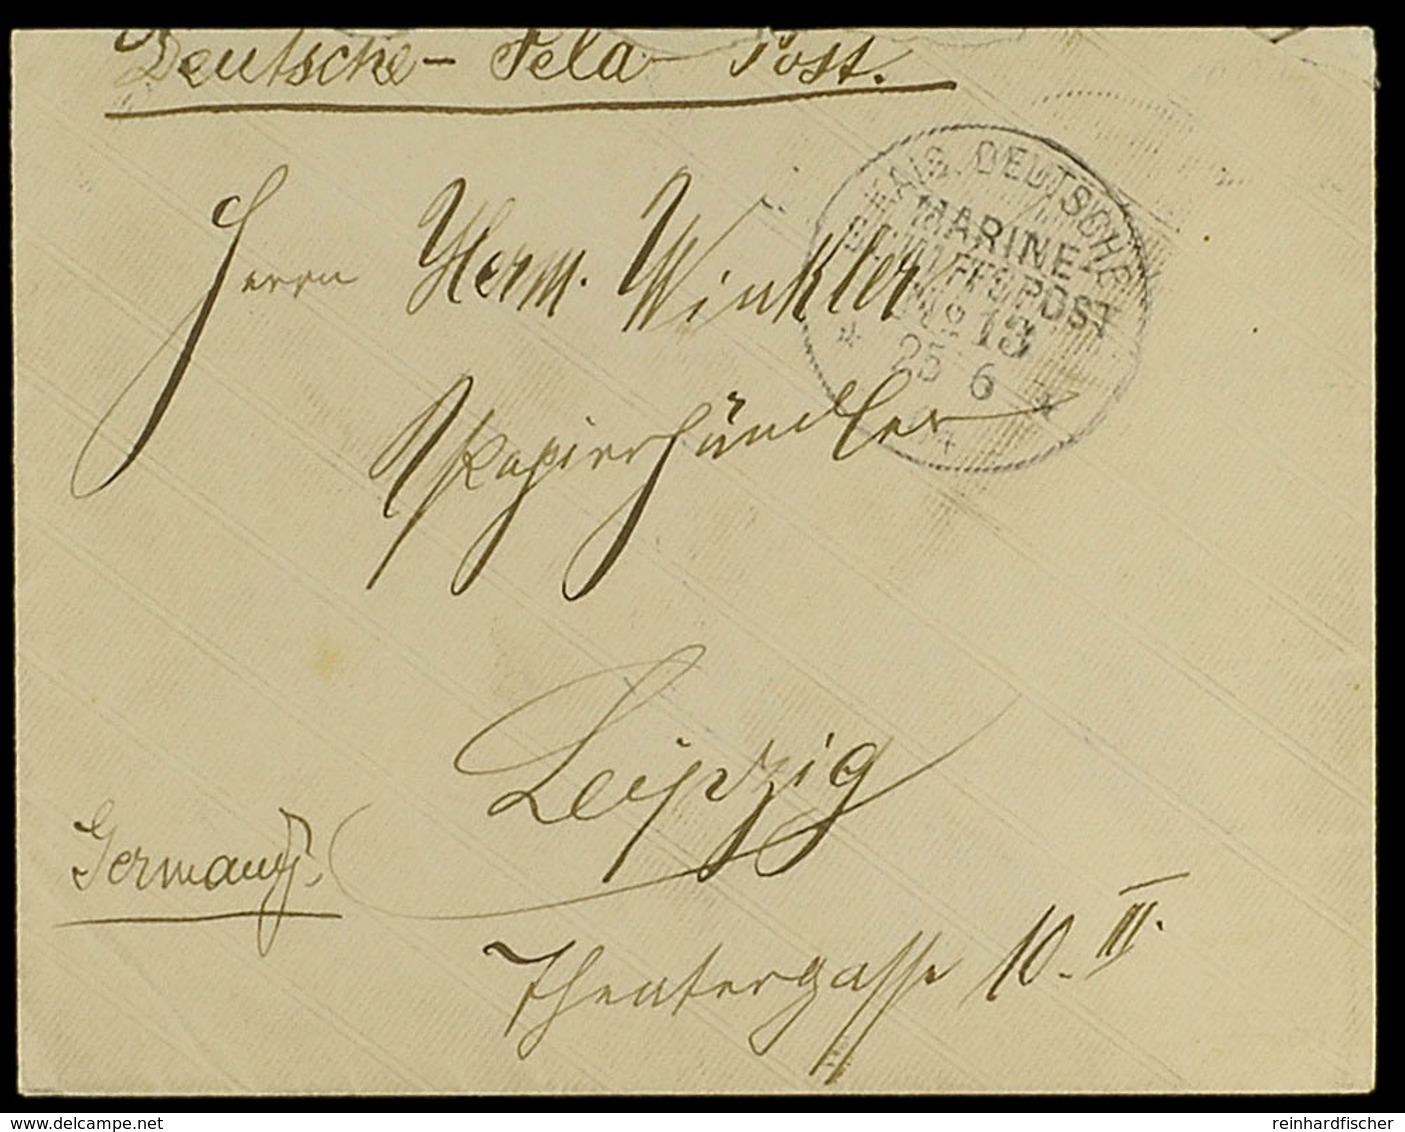 Deutsche- Feld- Post.
KAIS. DEUTSCHE
MARINE-
SCHIFFSPOST
No 13
* 25 6 *
Herrn Herm. Winkler
Papierhändler
Leipzig
Germany.
Theatergasse 10. III.
www.delcampe.net
reinhardfischer